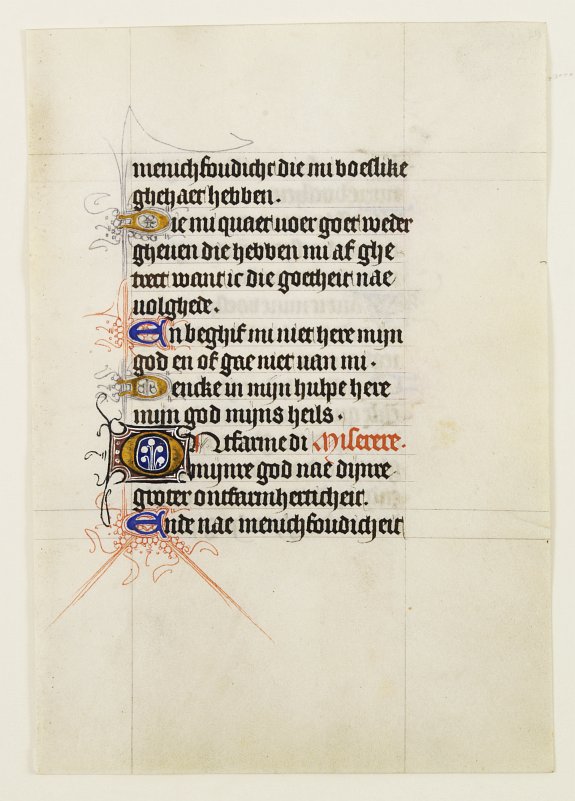 menichfoudicht die mi boeslike
ghehaet hebben.
Die mi quaet uoer goet weder
gheuen die hebben mi af ghe
trect want ic die goetheit nae
uolghede.
En beghif mi niet here mijn
god en of gae niet uan mi.
Dencke in mijn hulpe here
mijn god mijns heils.
Ontfarme di Miserere.
mijnre god nae dijnre
groter ontfarmherticheit.
Ende nae menichfoudicheit